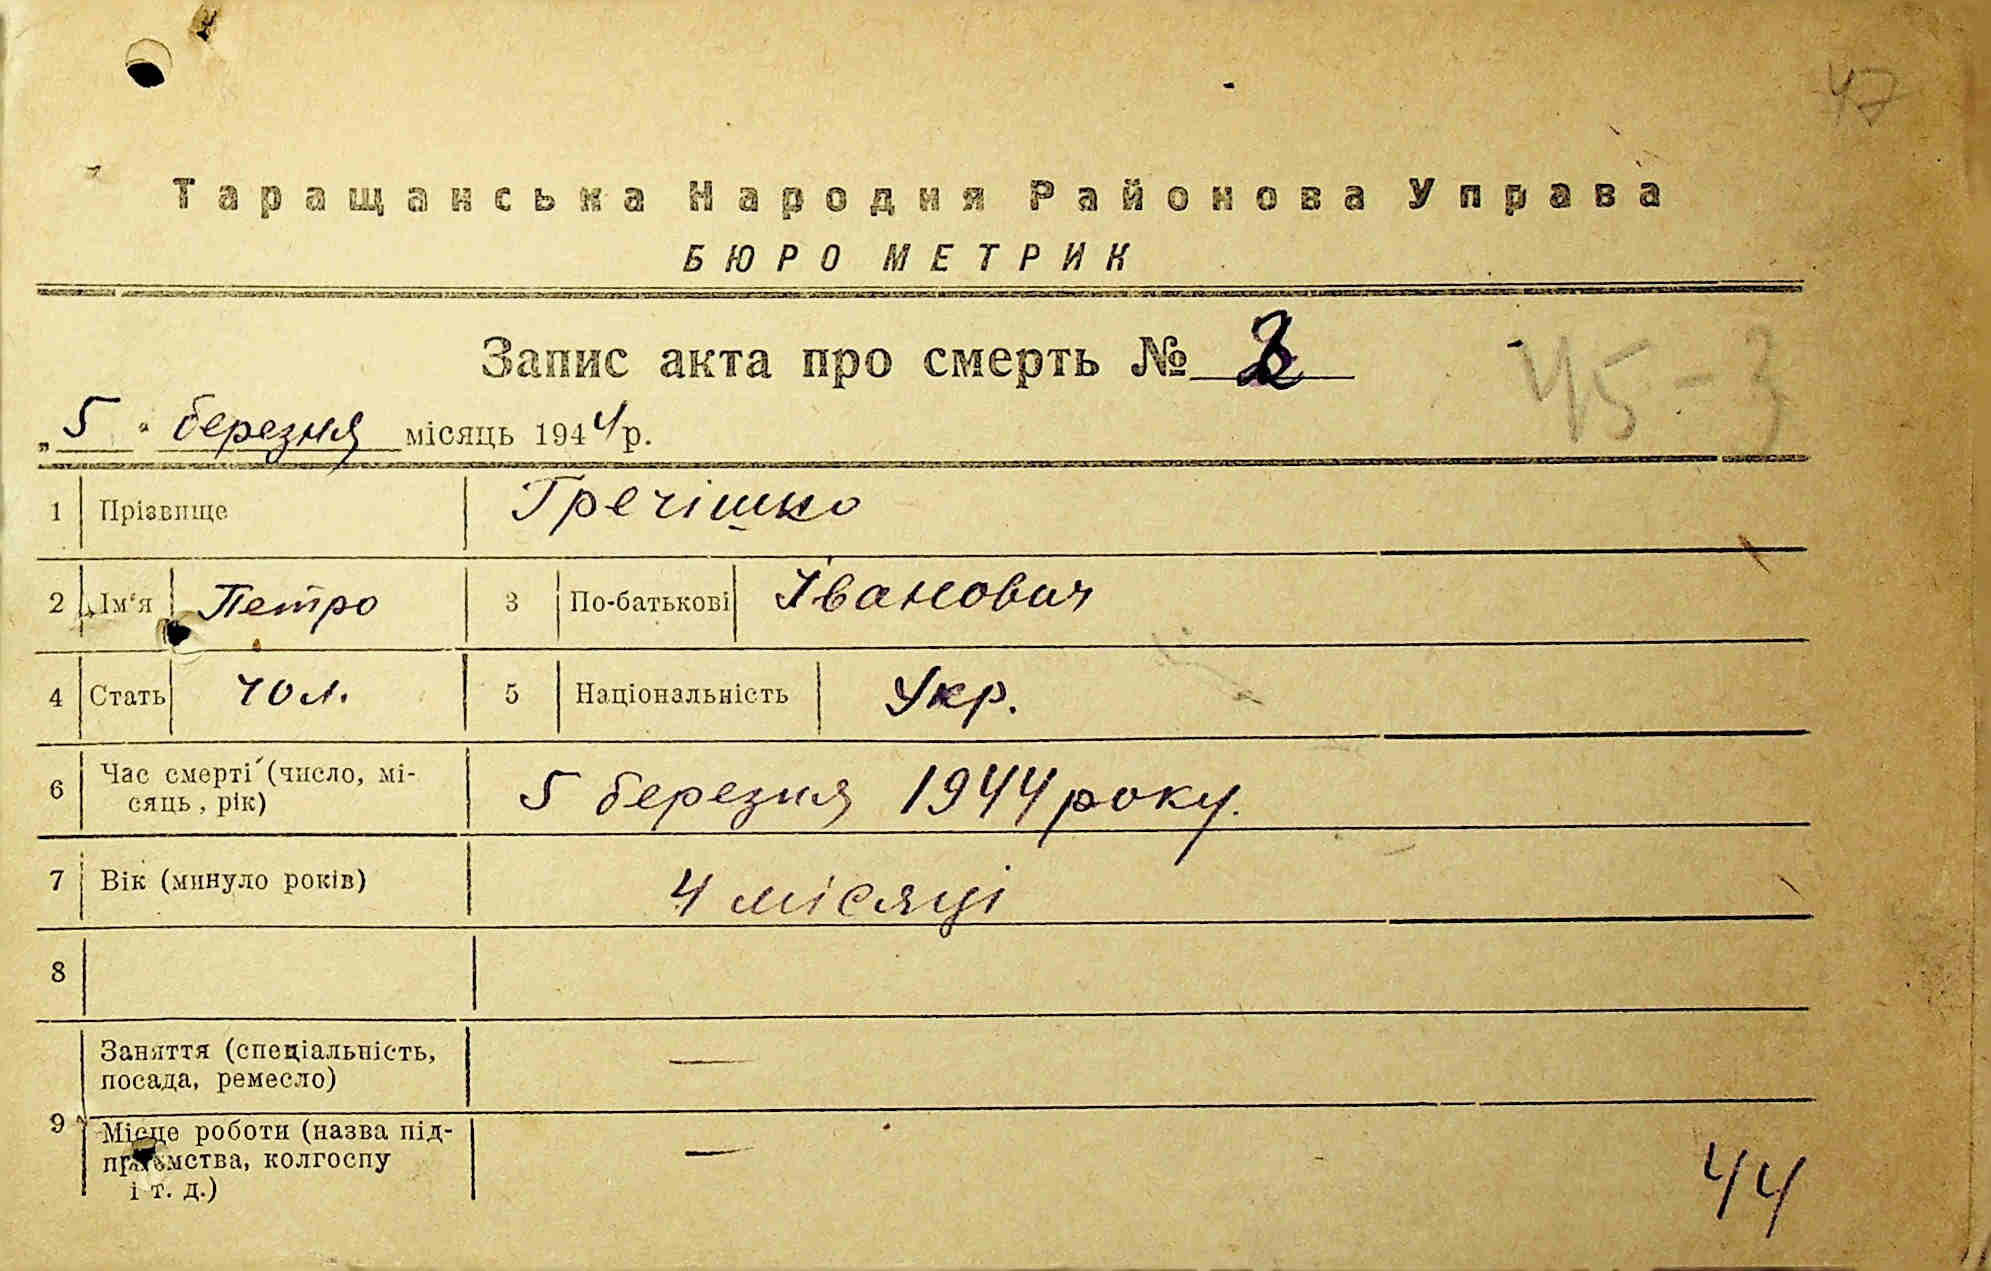 47
Таращанська Народня Районова Управа
БЮРО МЕТРИК
Запис акта про смерть №
45-3
„5" березня місяць 1944 р.
1 Прізвище Гречішко
2 Ім'я Петро 3 По-батькові Іванович
4 Стать чол. 5 Національність Укр.
6 Час смерті (число, мі-
сяць, рік) 5 березня 1944 року.
7 Вік (минуло років) 4 місяці
8
Заняття (спеціальність, —
посада, ремесло)
9 Місце роботи (назва під- —
приємства, колгоспу
і т. д.)
44